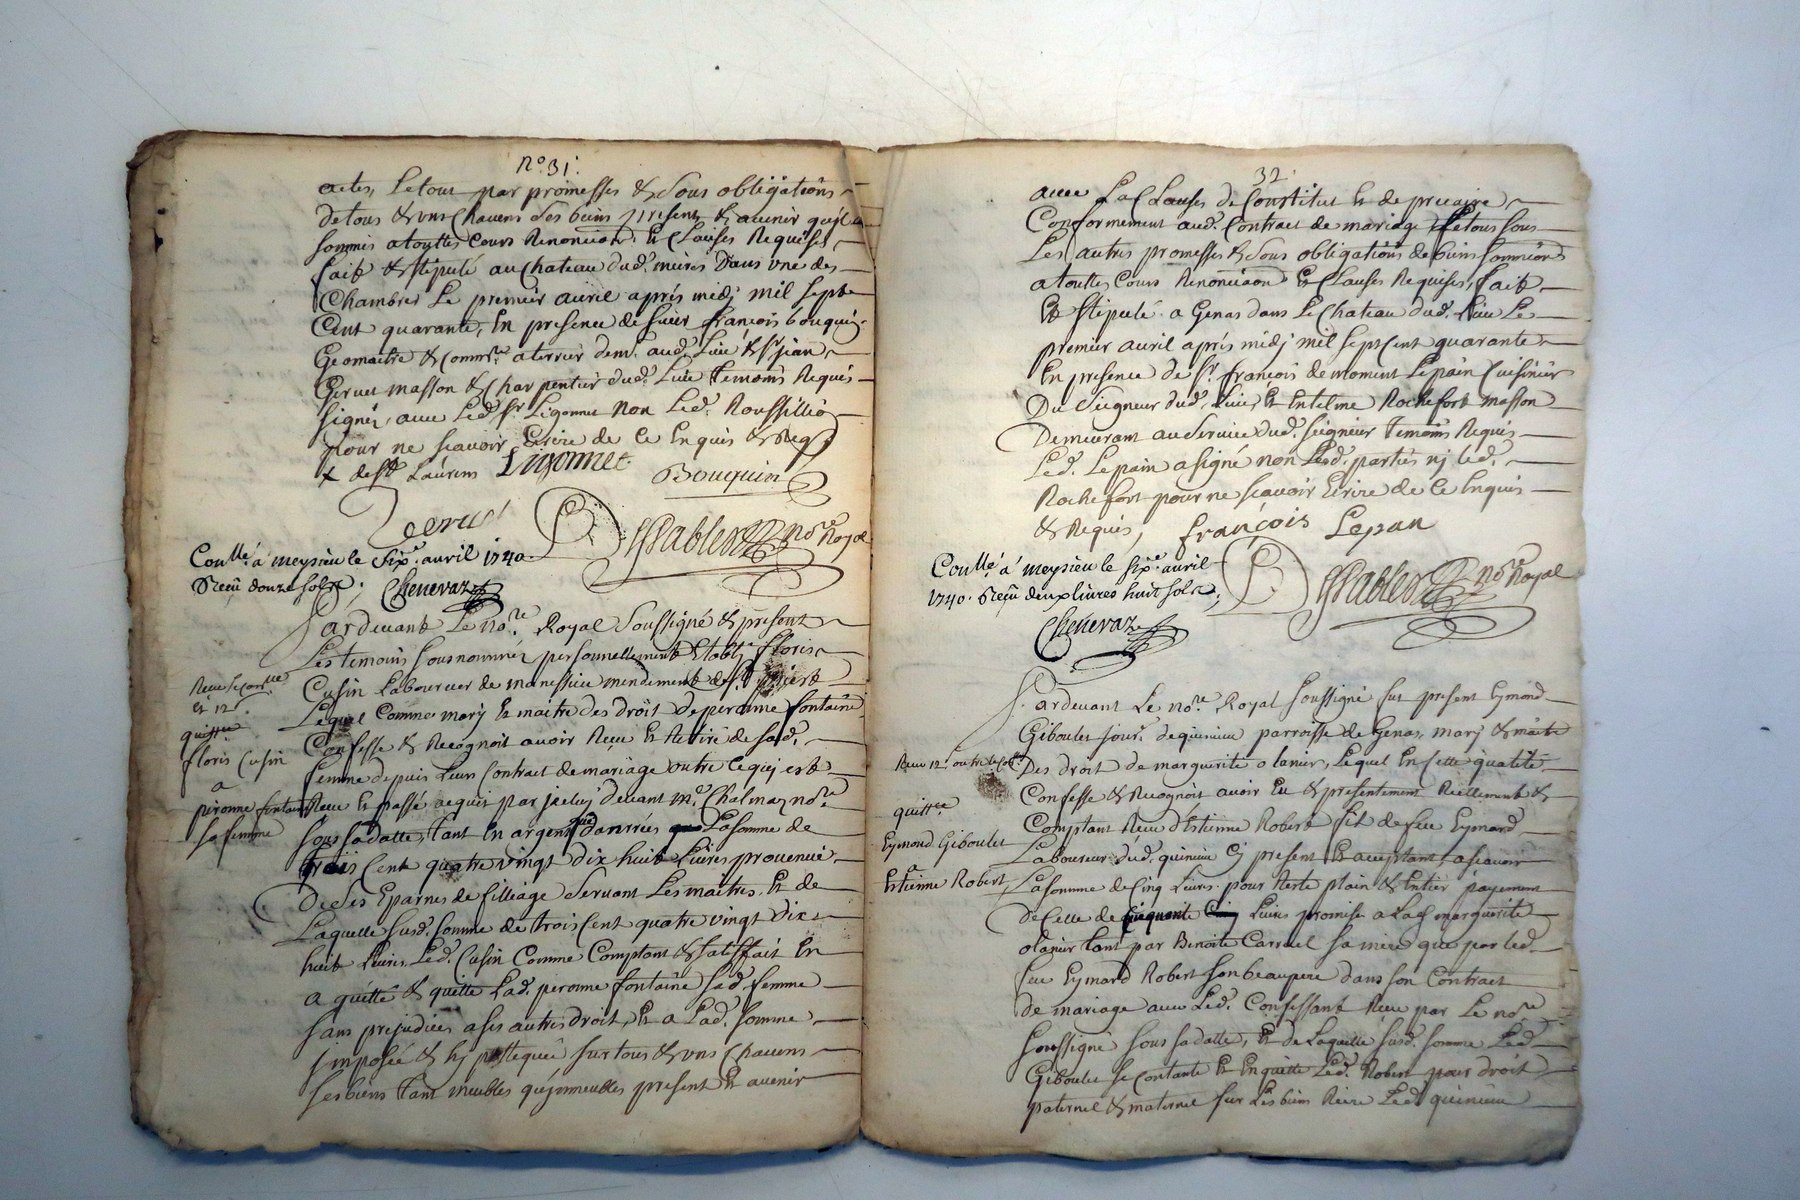 n.º 31.
actes, Letout par promesses & sous obligations
detous & uns Chacuns ses biens present & avenir qu'il
sommes atouttes Cours Renonciaon. Et Clauses Requises,
fait & stipulé au Chateau dud. mieres Dans une des
Chambres Le premier avril aprés midj mil sept
Cent quarante, En presence de sieur françois bouquin
Geomaitre & Commre. aterrier dem. aud. Lieu & sr jean
Gervet masson & Charpentier dud. Lieu temoins Requis
signés avec Led. sr Ligonnet Non Led. Roussillio
pour ne scavoir Ecrire de Ce Enquis & Req
x de st Laurens Ligonnet
Bouquin
Gervet
Pablet no.re Royal
Coullé. á meysieu le six.e avril 1740
Receu douze sols;
Chenevaz
Pardevant Le no.re Royal Soussigné & present
Les temoins sousnommez personnellement Etablj floris
Cusin Laboureur de manissieu mendement de st
Lequel Comme marj Et maitre des droit de peronne fontaine
Confesse & Recognoit avoir Receu Et Retiré de sad.
femme depuis Leurs Contract de mariage outre Ce quj est
Receu Et passé acquit par jceluj devant me. Chalmaz no.re
sous sa datte, tant En argent que danrées La somme de
trois Cent quatre vingt dix huit Livres provenüe
De ses Eparnes de filliage Servant Les maitres, Et de
Laquelle susd. somme de trois Cent quatre vingt dix
huit Livres Led. Cusin Comme Comptant & satisfait En
a quitté & quitte Lad. peronne fontaine sad. femme
sans prejudices a ses autres droit, Et a Lad. somme
jmposée & hypotequée sur tous & uns Chacuns
ses biens tant meubles qu'jmmeubles present Et avenir
Receu le Con.lle
et 12 s.
quittce
floris Cusin
a
peronne fontaine
sa femme
32.
avec La Clauses de Constitut Et de precaire
Conformement aud. Contract de mariage Letous sous
Les autres promesses & sous obligations de biens sommiors
atouttes Cours Renonciaon Et Clauses Requises, fait
Et stipulé a Genas dans Le Chateau dud. Lieu Le
premier avril aprés midj mil sept Cent quarante
En presence de sr. françois de moment Lepain Cuisinier
Du Seigneur dud. Lieu, Et Entelme Rochefort masson
Demeurant au Service dud. seigneur temoins Requis
Led. Lepain a signé non Lesd. parties nj Led.
Rochefort pour ne scavoir Ecrire de Ce Enquis
& Requis, françois Lepan
Pablet no.re Royal
Coullé. á meysieu le six.e avril
1740. Receu deux livres huit sols;
Chenevaz
Pardevant Le no.re Royal soussigné fut present Eymond
Giboulet jour.r dequinieu parroisse de Genas, marj & maitre
Des droit de marguerite olanier, Lequel En Cette qualité
Confesse & Recognoit avoir Eu & presentement Reellement &
Comptant Receu d'Estienne Robert fil de feu Eymard
Laboureur dud. quinieu Cj present Et acceptant, a scavoir
La somme de Cinq Livres pour Reste plain & Entier payement
de Celle de Cinquante Cinq Livres promises a Lad. marguerite
olanier tant par Benoite Carruel sa mere que par Led.
feu Eymard Robert son beaupere dans son Contract
de mariage avec Led. Confessant Receu par Le no.re
soussigné sous sa datte, Et de Laquelle susd. somme Led.
Giboulet se Contante Et En quitte Led. Robert pour droit
paternel & maternel sur Les biens Riere Led. quinieu
Receu 12 s. outre le Con.lle
quittce
Eymond Giboulet
a
Estienne Robert